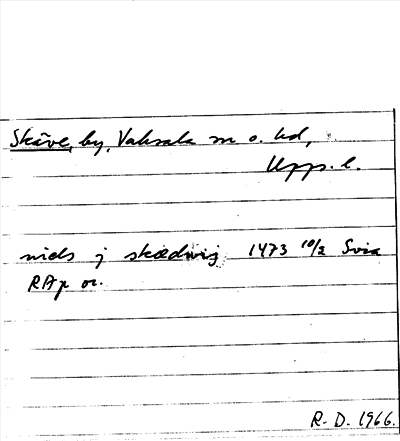 Skäve, by, Vaksala sn o. hd,
Upps. l.
niels j skædwig 1473 10/2 Svia
RAp or.
R. D. 1966.